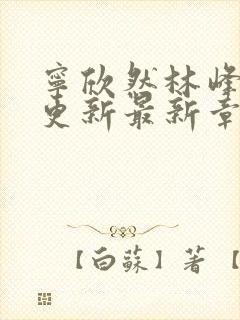 寧欣然林峰
更新最新章
【白蘇】著【